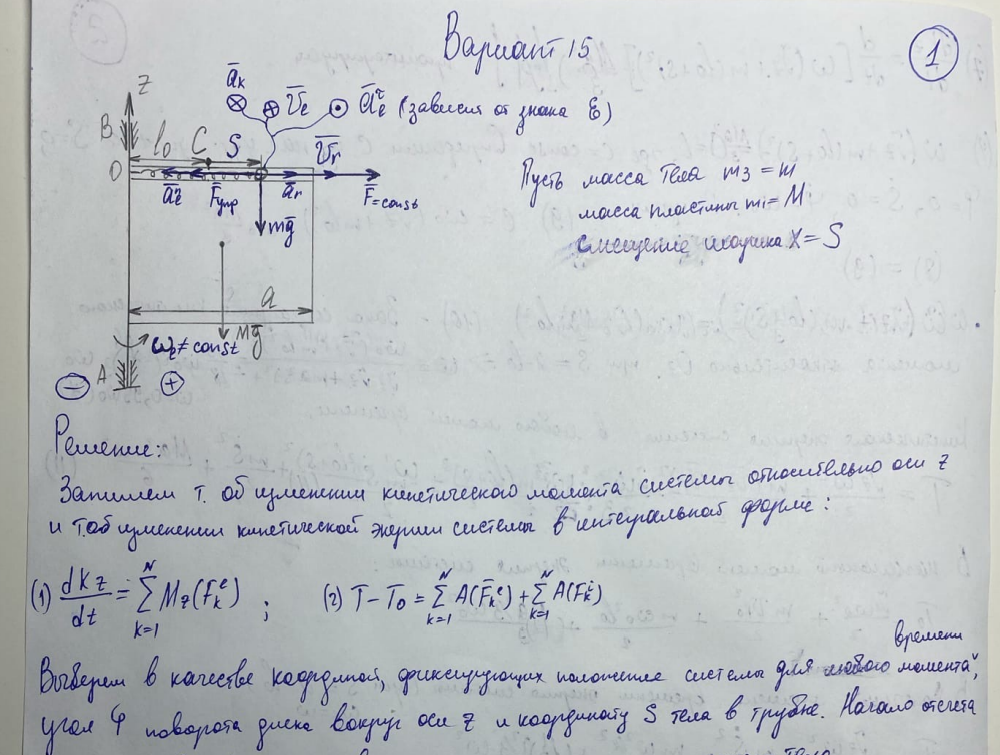 Вариант 15
1
z
ā_k
v̄_e
ā_e^τ (зависит от знака ε)
B
l₀
C
S
v̄_r
O
ā_e^n
F̄упр
ā_r
F̄=const
mḡ
Пусть масса тела m₃ = m
масса пластины m₁ = M
смещение ползунка X = S
a
Mḡ
ω_z ≠ const
A
− +
Решение:
Запишем т. об изменении кинетического момента системы относительно оси z
и т.об изменении кинетической энергии системы в интегральной форме:
(1) dKz/dt = Σ_{k=1}^{N} Mz(F̄_k^e) ; (2) T − T₀ = Σ_{k=1}^{N} A(F̄_k^e) + Σ_{k=1}^{N} A(F̄_k^i)
времени
Выберем в качестве координат, фиксирующих положение системы для любого момента,
угол φ поворота диска вокруг оси z и координату S тела в трубке. Начало отсчета